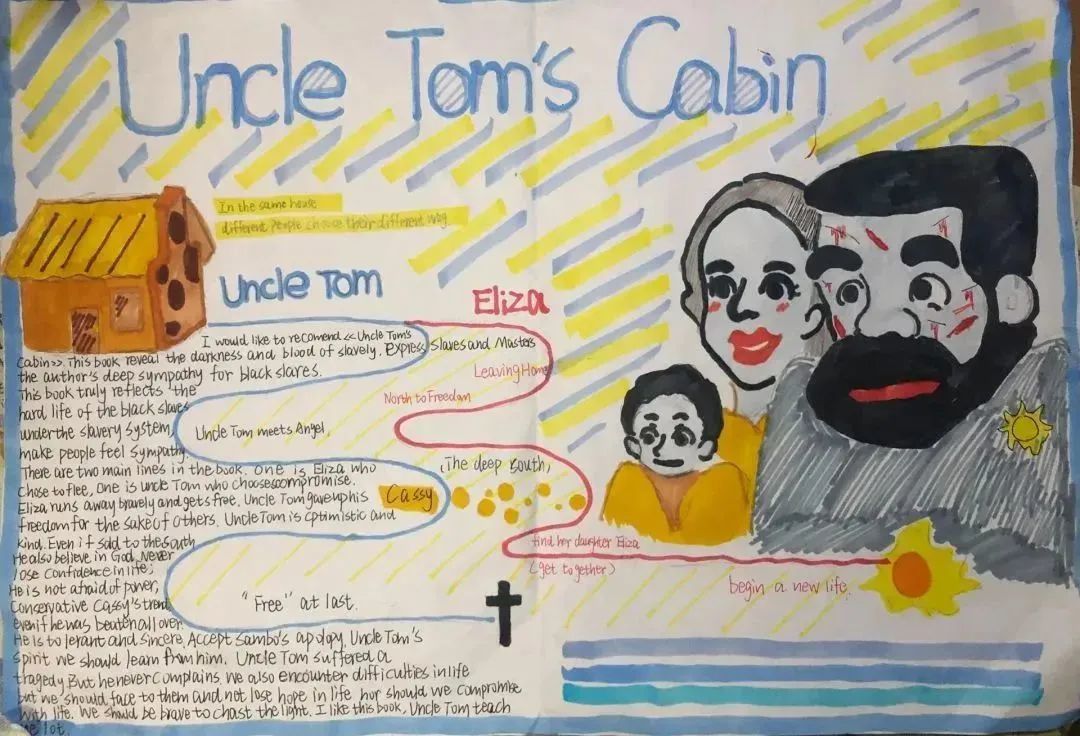 Uncle Tom's Cabin
In the same house
different People choose their different way
Uncle Tom
Eliza
I would like to recomend <<Uncle Tom's
Cabin>>. This book reveal the darkness and blood of slavely. Express Slaves and Masters
the author's deep sympathy for black slares.
This book truly reflects the
hard life of the black slaves
under the slavery system,
make people feel sympathy.
There are two main lines in the book. One is Eliza who
chose to flee, One is uncle Tom who choosescompromise.
Eliza runs away bravely and gets free. Uncle Tom gave up his
freedom for the sake of others. Uncle Tom is optimistic and
kind. Even if sold to the south
He also believe in God, Never
lose confidence in life;
He is not afraid of power,
Conservative Cassy's trend
even if he was beaten all over
He is tolerant and sincere. Accept Sambo's apology. Uncle Tom's
spirit we should learn from him. Uncle Tom suffered a
tragedy. But he never complains. We also encounter difficulties in life
but we should face to them and not lose hope in life. nor should we compromise
with life. We should be brave to chast the light. I like this book, Uncle Tom teach
me lot.
Leaving Home
North to Freedom
Uncle Tom meets Angel.
(The deep South)
Cassy
find her daughter Eliza
(get together)
begin a new life.
"Free" at last.